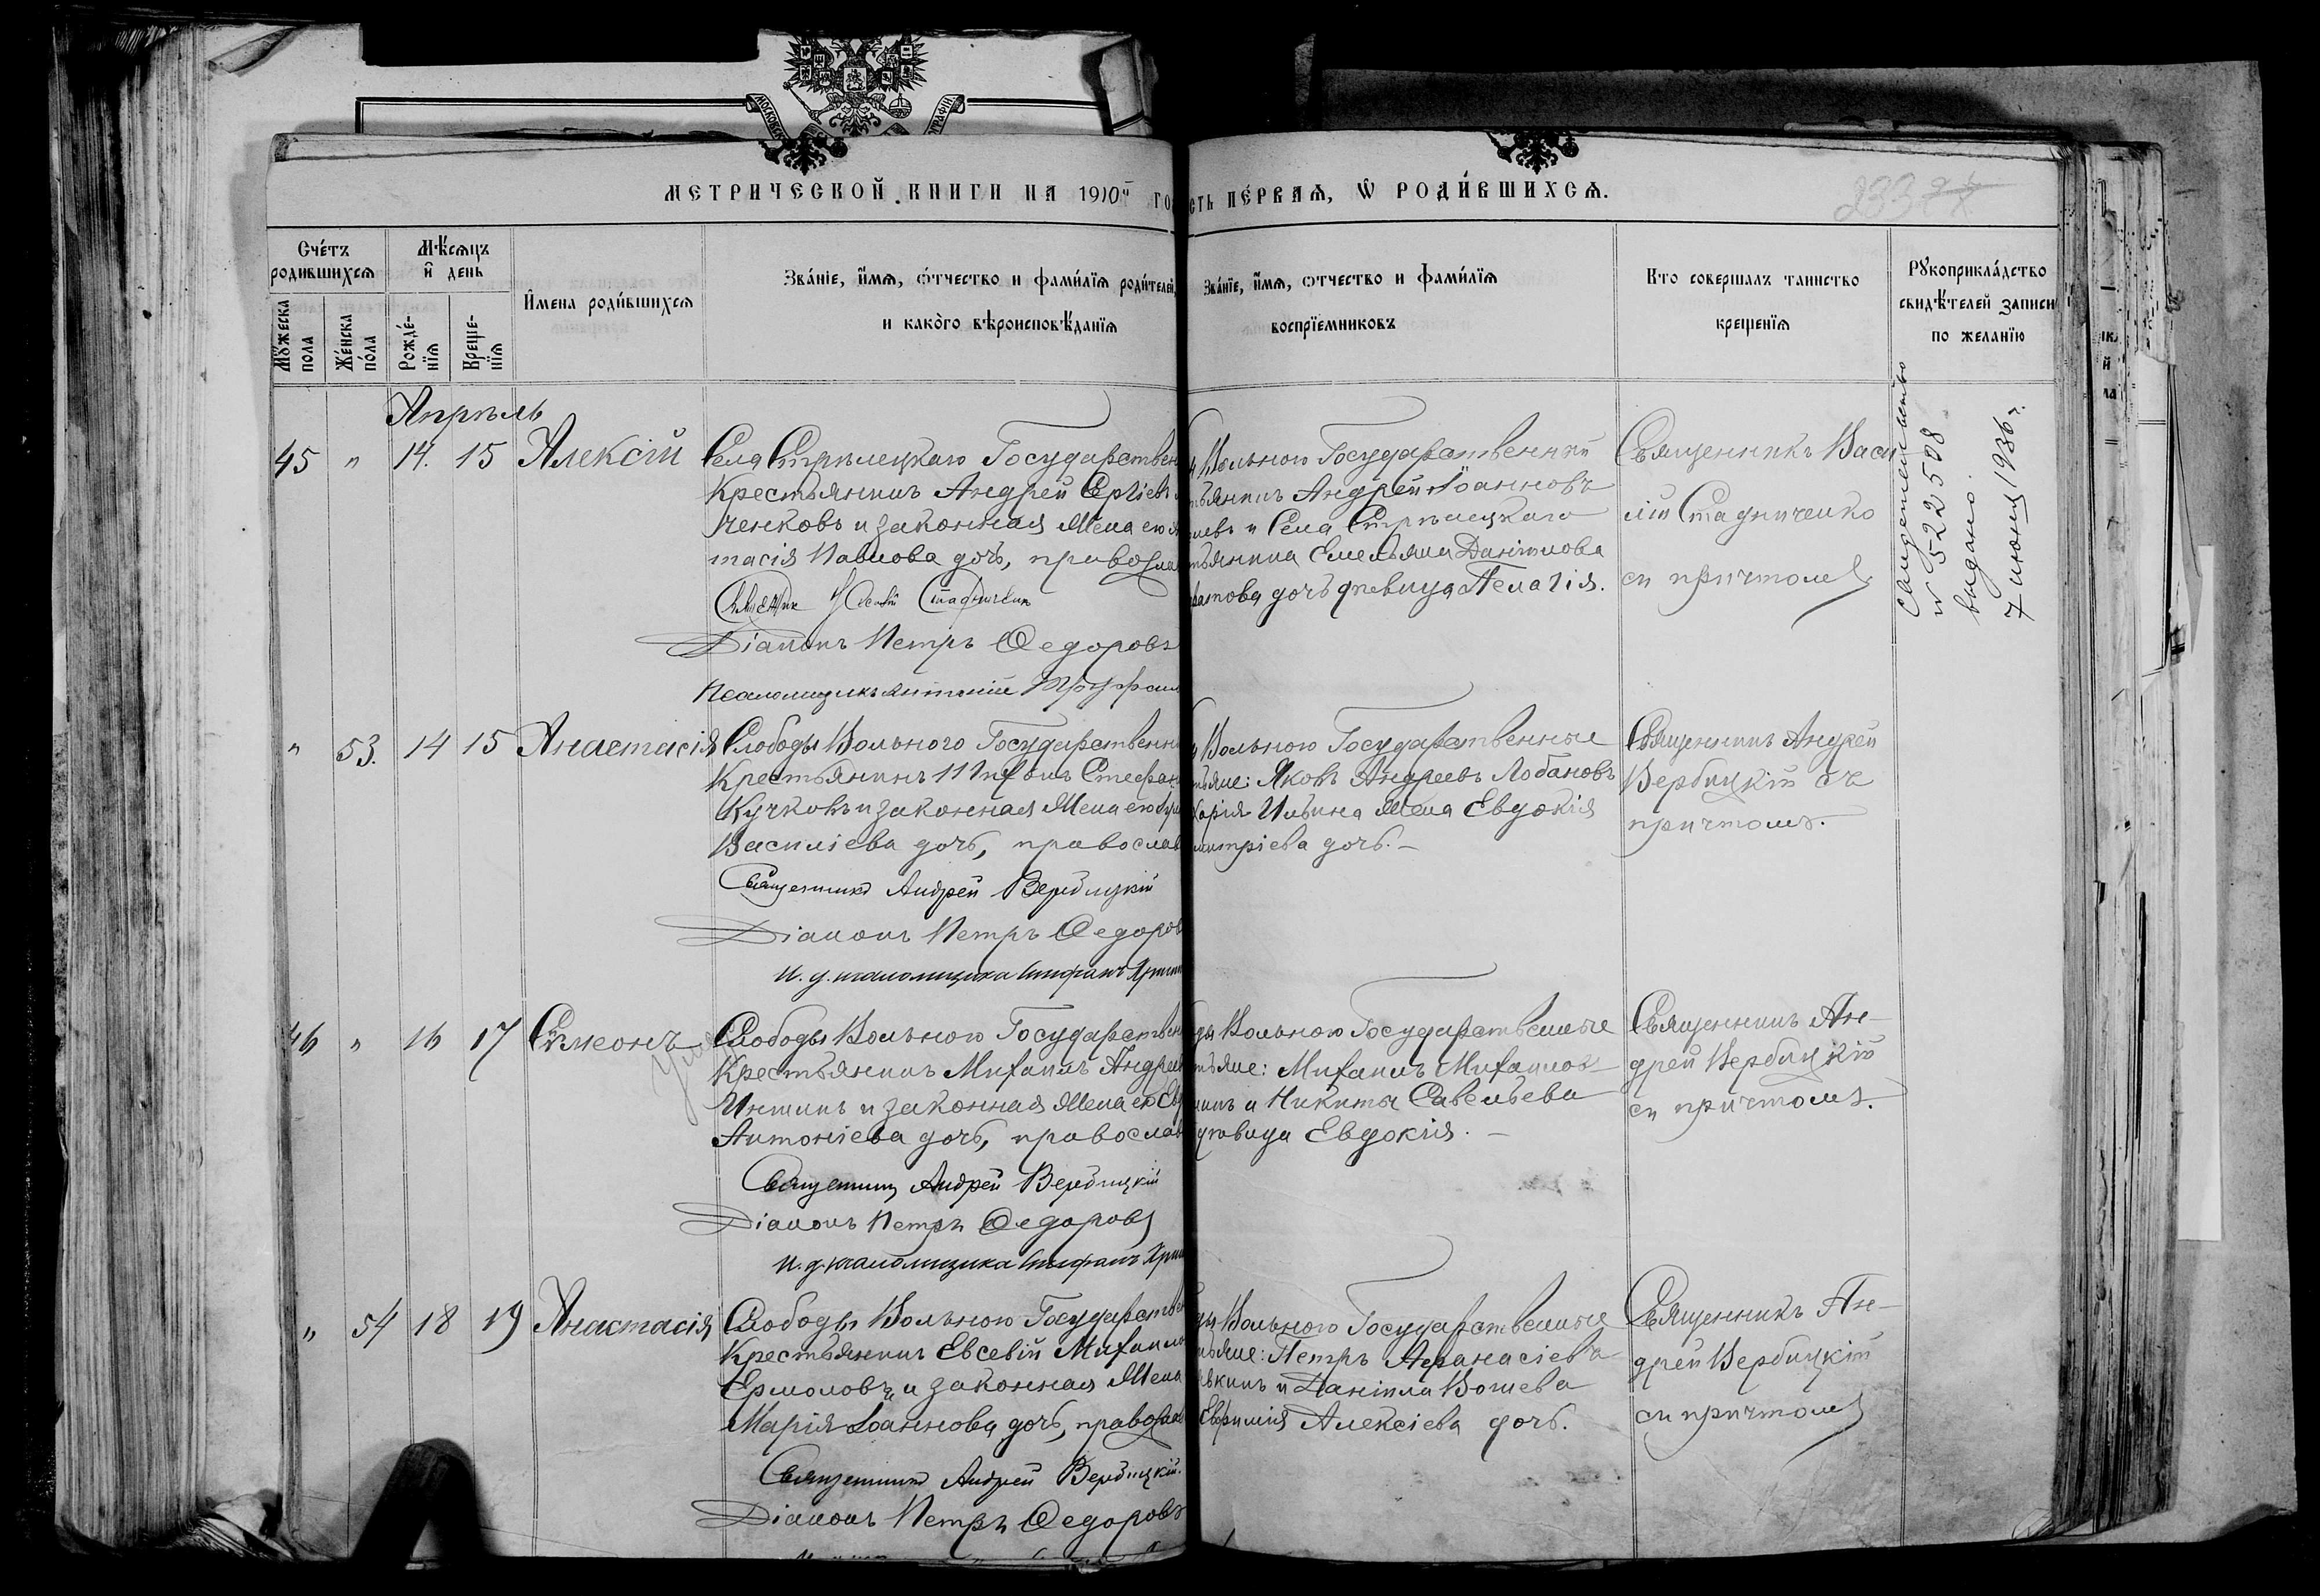 МОСКОВСК
ГРАФІИ
МЕТРИЧЕСКОЙ КНИГИ НА 1910й ГО
СТЬ ПЕ́РВАѦ, Ѿ РОДИ́ВШИХСѦ.
233
Сче́тъ родившихсѧ
Мꙋ́жеска пола
Же́нска по́ла
Мѣ́сѧцъ и҆ день
Рожде́нїѧ
Креще́нїѧ
И҆мена роди́вшихсѧ
Зва́нїе, и҆́мѧ, ѻ҆́тчество и фами́лїѧ роди́телей,
и како́го вѣроисповѣ́данїѧ
Зва́нїе, и҆́мѧ, ѻтчество и фами́лїѧ
воспрїемниковъ
Кто совершалъ таинство
крещенїѧ
Рꙋкоприкла́дство
свидѣ́телей записи
по желанїю
Апрѣль
45 " 14. 15 Алексій
Села Стрѣлецкаго Государствен
Крестьянинъ Андрей Сергіевъ
ченковъ и законная жена его А
тасія Павлова дочь, правосла
Священник Стадниченко
Діаконъ Петръ Ѳедоровъ
Псаломщикъ
Вольного Государственный
тьянинъ Андрей Іоанновъ
и Села Стрѣлецкаго
тьянина Емельяна Даніилова
дочь дѣвица Пелагія.
Священникъ Васи
лій Стадниченко
съ причтомъ
Свидетельство
№ 522508
выдано.
7 июня 1936 г.
" 53. 14 15 Анастасія
Слободы Вольного Государственны
Крестьянинъ Стефан
Кучковъ и законная жена его
Василіева дочь, православ
Священникъ Андрей Вербицкій
Діаконъ Петръ Ѳедоров
и. д. псаломщика Стефанъ
Вольного Государственные
тьяне: Яковъ Андреевъ Лобановъ
харія Ильина жена Евдокія
митріева дочь. –
Священникъ Андрей
Вербицкій съ
причтомъ.
46 " 16 17 Сѵмеонъ
Слободы Вольного Государствен
Крестьянинъ Михаилъ Андрее
и законная жена его Ев
Антоніева дочь, православ
Священникъ Андрей Вербицкій
Діаконъ Петръ Ѳедоровъ
и. д. псаломщика Стефанъ
ды Вольного Государственные
тьяне: Михаилъ Михаилов
и Никиты Савельева
дѣвица Евдокія. –
Священникъ Ан-
дрей Вербицкій
съ причтомъ.
" 54 18 19 Анастасія
Слободы Вольного Государствен
Крестьянинъ Евсевій Михаило
Ермоловъ и законная жена
Марія Іоаннова дочь, правосла
Священникъ Андрей Вербицкій.
Діаконъ Петръ Ѳедоровъ
ды Вольного Государственные
тьяне: Петръ Аѳанасіевъ
и Даніила
Евфимія Алексіева дочь.
Священникъ Ан-
дрей Вербицкій
съ причтомъ